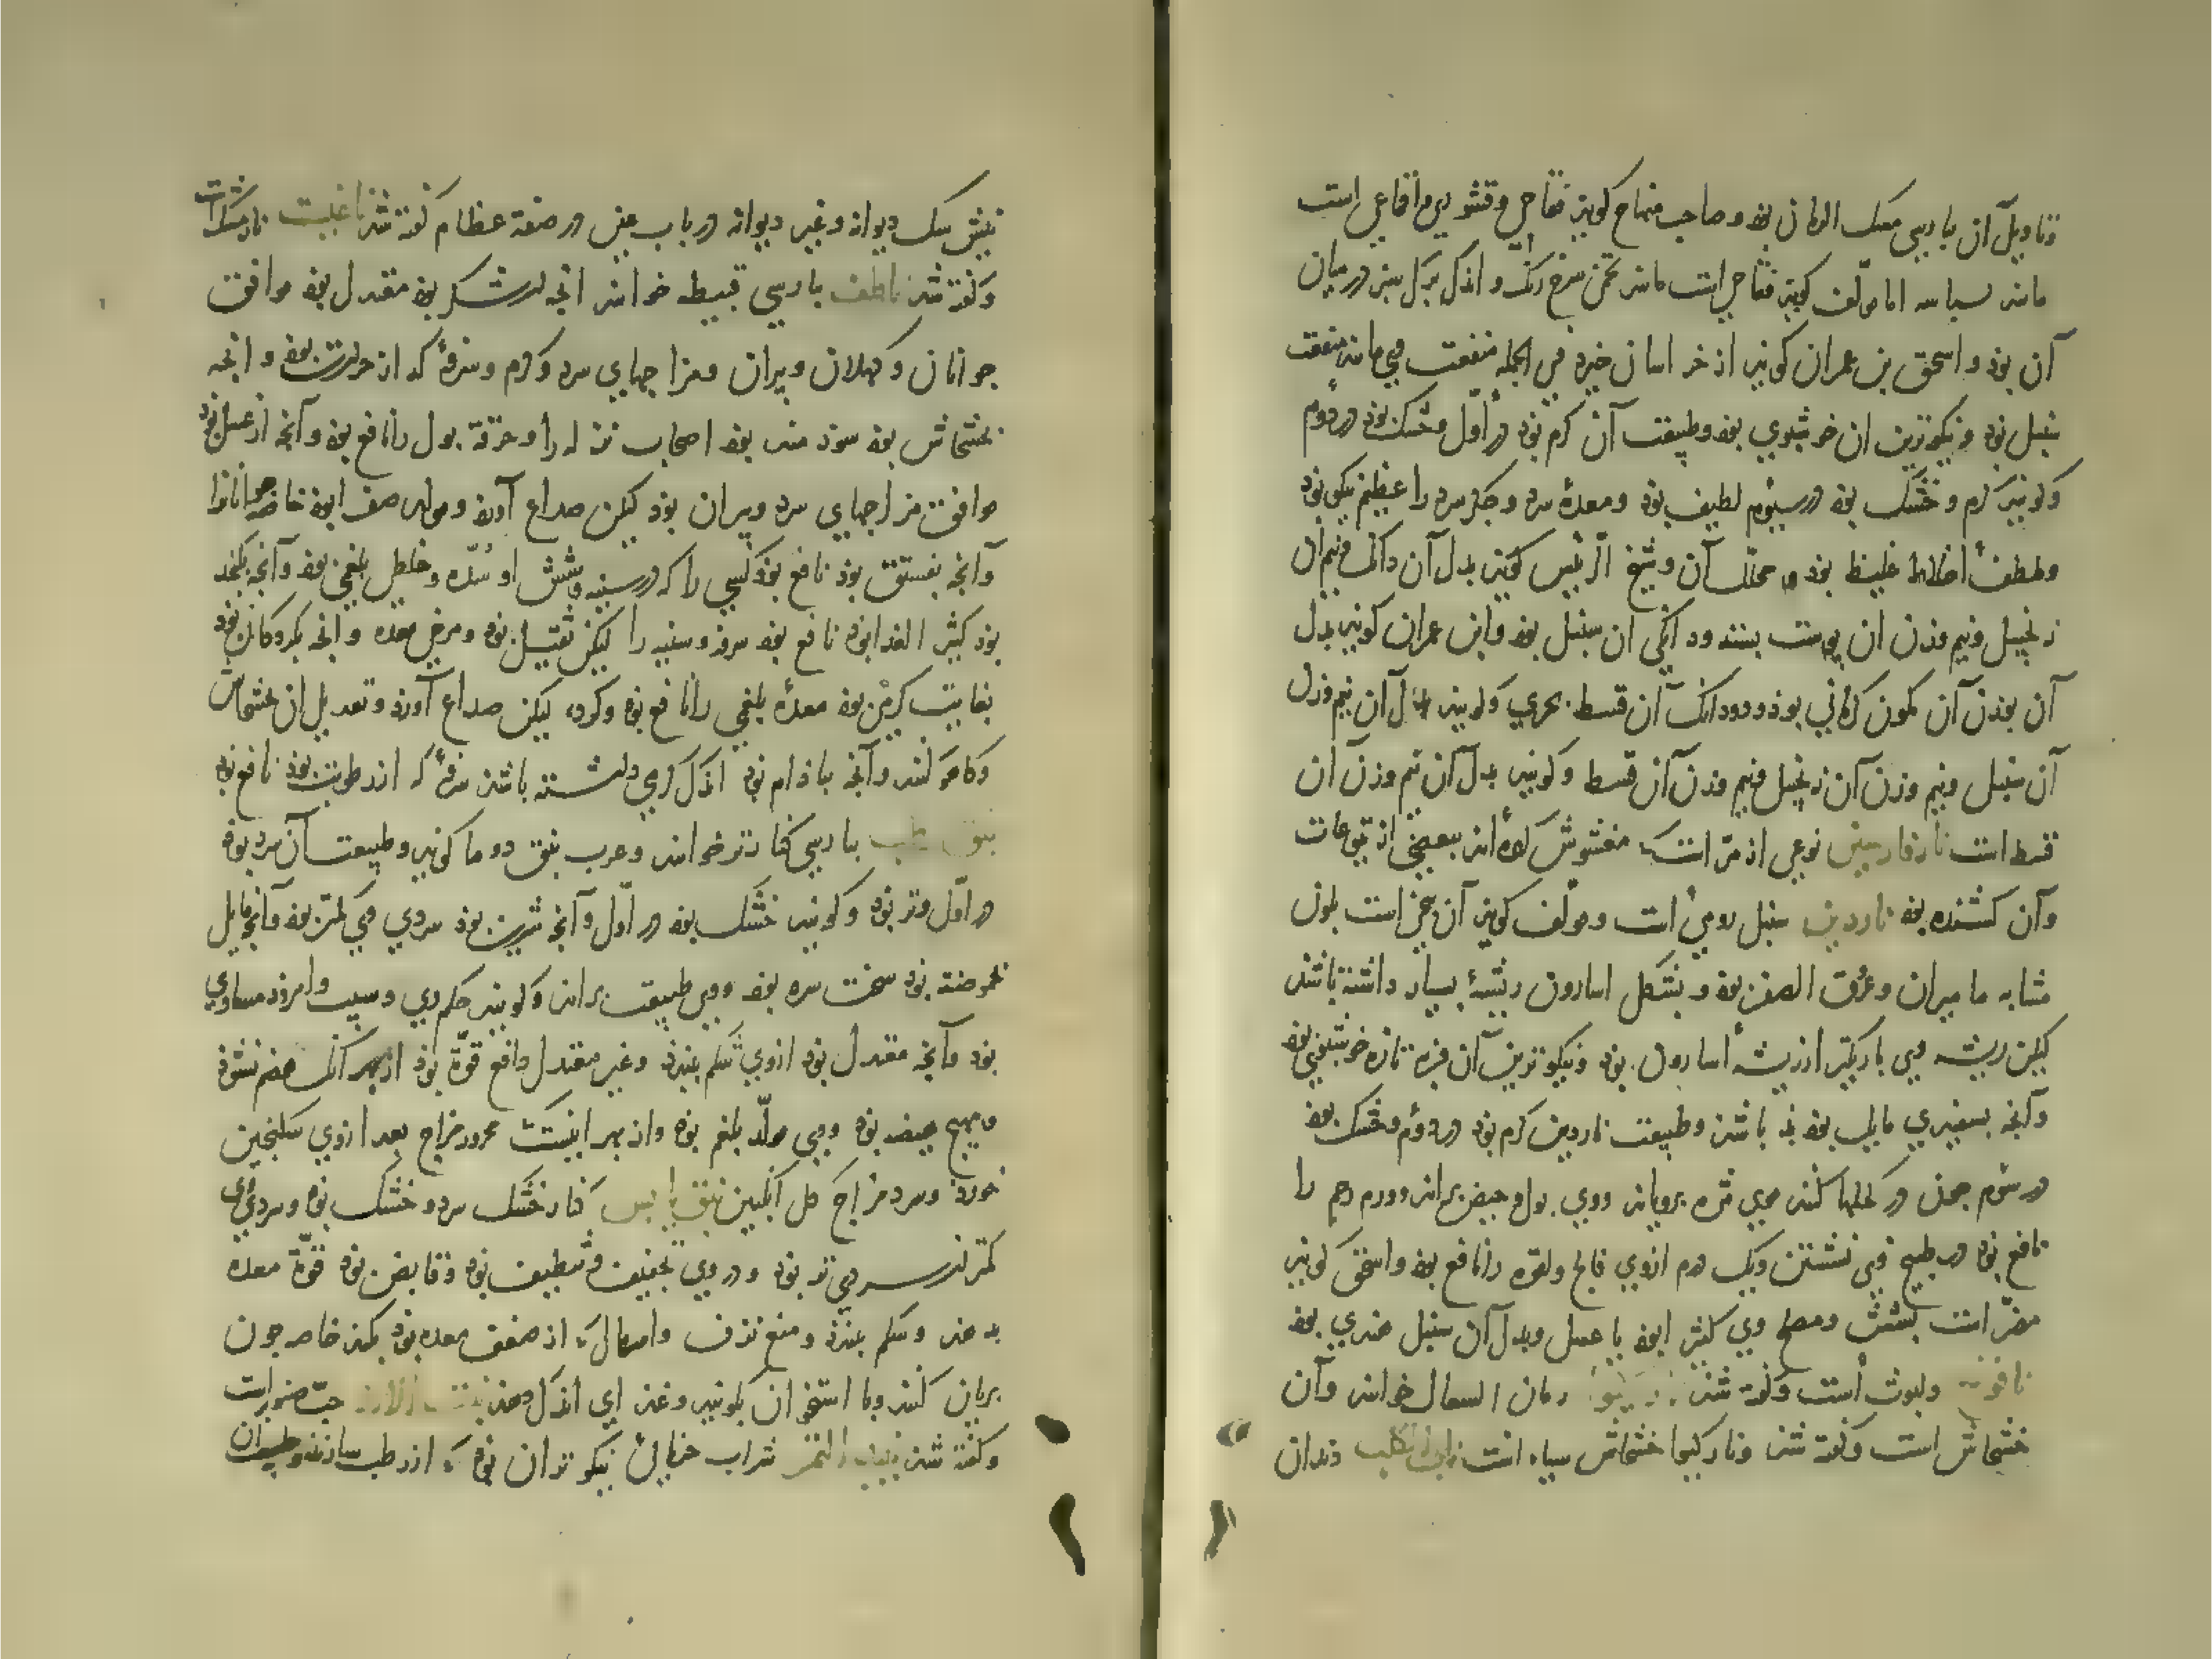 وتاویل آن بپارسی مسک الرمان بود و صاحب منهاج کویذ فقاحی و قشوری و اقماعی است
مانند بسباسه اما مولف کویذ فقاحی است مانند تخمی سرخ رنک و اندکی برک سبز در میان
آن بود و اسحق بن عمران کویند از خراسان خیزد فی الجمله منفعت وی مانند منفعت
سنبل بود و نیکوترین آن خوشبوی بود و طبیعت آن کرم بود در اول و خشک بود در دوم
و کویند کرم و خشک بود در سیوم لطیف بود و معدهٔ سرد و جکر سرد را عظیم نیکو بود
و ملطف اخلاط غلیظ بود و محلل آن و شیخ الرئیس کوید بدل آن دانکی و نیم آن
زنجبیل و نیم وزن آن پوست پسته و دانکی آن سنبل بود و ابن عمران کویند بدل
آن بوزن آن کمون کرمانی بود و دودانک آن قسط بحری و کویند بدل آن نیم وزن
آن سنبل و نیم وزن آن زنجبیل و نیم وزن آن قسط و کویند بدل آن نیم وزن آن
قسط است نارفارسین نوعی از مر است مغشوش کرده اند ببعضی از یتوعات
وآن کشنده بود ناردین سنبل رومی است و مولف کویذ آن بیخی است بلون
مشابه مامیران و عروق الصفر بود و بشکل اسارون ریشهٔ بسیار داشته باشد
لیکن ریشه وی باریکتر از ریشهٔ اسارون بود و نیکوترین آن فربه تازه خوشبوی بود
وآنچه بسفیدی مایل بود بد باشد و طبیعت ناردین کرم بود در دوم و خشک بود
در سوم چون در کحلها کنند موی مژه برویاند و وی بول و حیض براند و ورم رحم را
نافع بود در طبیخ وی نشستن و یک درم ازوی فالج و لقوه را نافع بود و اسحق کویند
مضر است بشش و مصلح وی کثیرا بود با عسل و بدل آن سنبل هندی بود
نافوخ ولبوث است و کفته شد رمان السعال خوانند وآن
خشخاش است و کفته شد ونارکیوا خشخاش سیاه است ناب الکلب دندان
نیش سک دیوانه و غیر دیوانه در باب عین در صفة عظام کفته شد ناغیست نارمشکست
و کفته شد ناطف بپارسی قبیطه خوانند آنچه از شکر بود معتدل بود موافق
جوانان و کهلان و پیران و مزاجهای سرد و کرم و سرفهٔ که از حرارت بود و آنچه
بخشخاش بود سودمند بود اصحاب نزله را و حرقة بول را نافع بود وآنچه از عسل بود
موافق مزاجهای سرد و پیران بود لیکن صداع آورد و مولد صفرا بود خاصه جوانانرا
وآنچه بفستق بود نافع بود کسی را که در سینه و شش او سده و خلطی بلغمی بود وآنچه بکنجد
بود کثیر الغذا بود نافع بود سرفه و سینه را لیکن ثقیل بود و مرخی معده وآنچه بکردکان بود
بغایت کرمی بود معدهٔ بلغمی را نافع بود و کرده لیکن صداع آورد و تعدیل آن بخشخاش
و کاهو کنند وآنچه ببادام بود اندک کرمی داشته باشد سرفهٔ که از رطوبت بود نافع بود
نبق رطب بپارسی کنار تر خوانند و عرب نبق دوما کویند و طبیعت آن سرد بود
در اول و تر بود و کویند خشک بود در اول وآنچه شیرین بود سردی وی کمتر بود وآنچه مایل
بحموضت بود سخت سرد بود و وی طبیعت براند و کویند حکم وی و سیب و امرود مساوی
بود وآنچه معتدل بود ازوی شکم ببندد و غیر معتدل دافع قوة بود از بهر آنک هضم نشود
و مهیج هیضه بود و وی مولد بلغم بود و از بهر اینست که محرور مزاج بعد ازوی سکنجبین
خورد و سرد مزاج کل انکبین نبق یابس کنار خشک سرد و خشک بود و سردی وی
کمتر از سردی تر بود و در وی تجفیف و تلطیف بود و قابض بود قوة معده
بدهد و شکم ببندد و منع نزف و اسهالی که از ضعف معده بود بکند خاصه چون
بریان کنند و با استخوان بکوبند و غذای اندک دهد حب صنوبر است
و کفته شد نبیذ التمر شراب خرما نیکوترآن بود که از رطب سازند و طبیعت آن